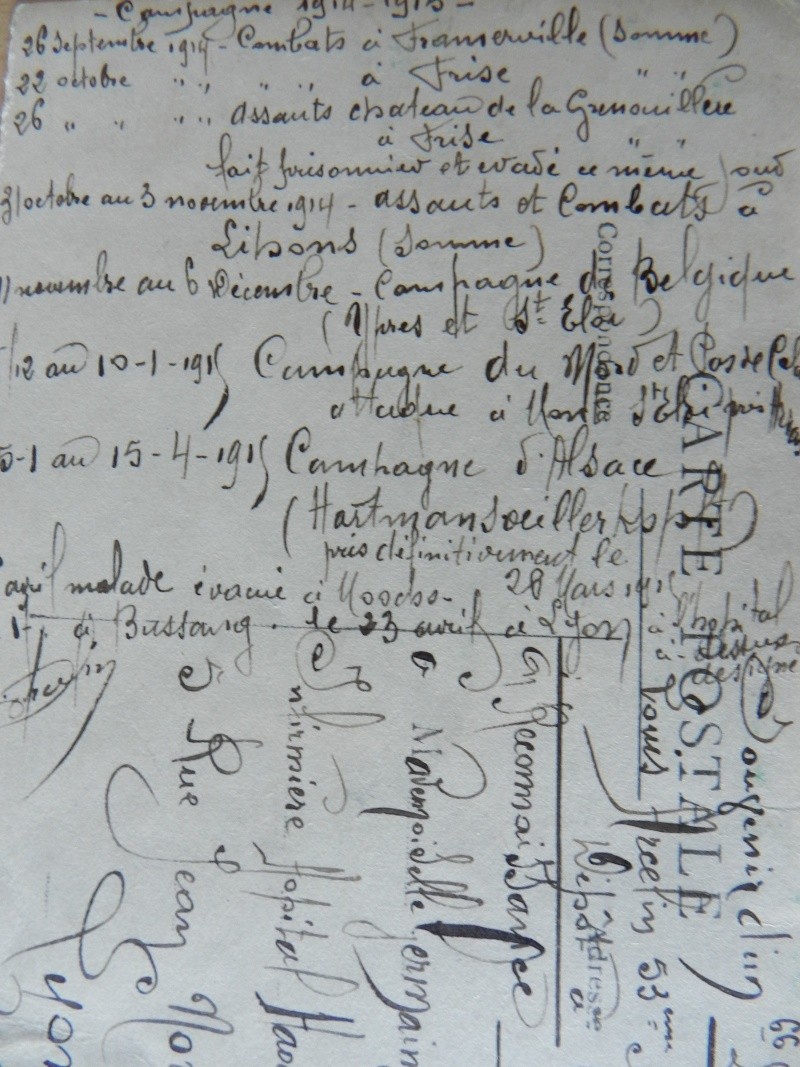 - Campagne 1914-1915 -
26 Septembre 1914 - Combats à Framerville (Somme)
22 octobre " " " " à Frise " "
26 " " " " assauts chateau de la Grenouillère
à Frise " "
fait prisonnier et evadé ce même
31 octobre au 3 novembre 1914 - assauts et Combats à
Lihons (Somme)
novembre au 6 Décembre - Campagne de Belgique
(Ypres et St Eloi)
12 au 10-1-1915 Campagne du Nord et Pas de Cal
attaque à Mont St Eloi près
-1 au 15-4-1915 Campagne d'Alsace
(Hartmansveillerkopf)
pris définitivement le
28 Mars 1915
avril malade évacué à Moosch -
à Bussang. le 23 avril à Lyon à l'hopital
désigné
CARTE POSTALE
Correspondance
Adresse
Souvenir d'un
Louis Arcelin 53ème
En Reconnaissance
à Mademoiselle Germaine
Infirmière Hopital
5 Rue Jean
Lyon